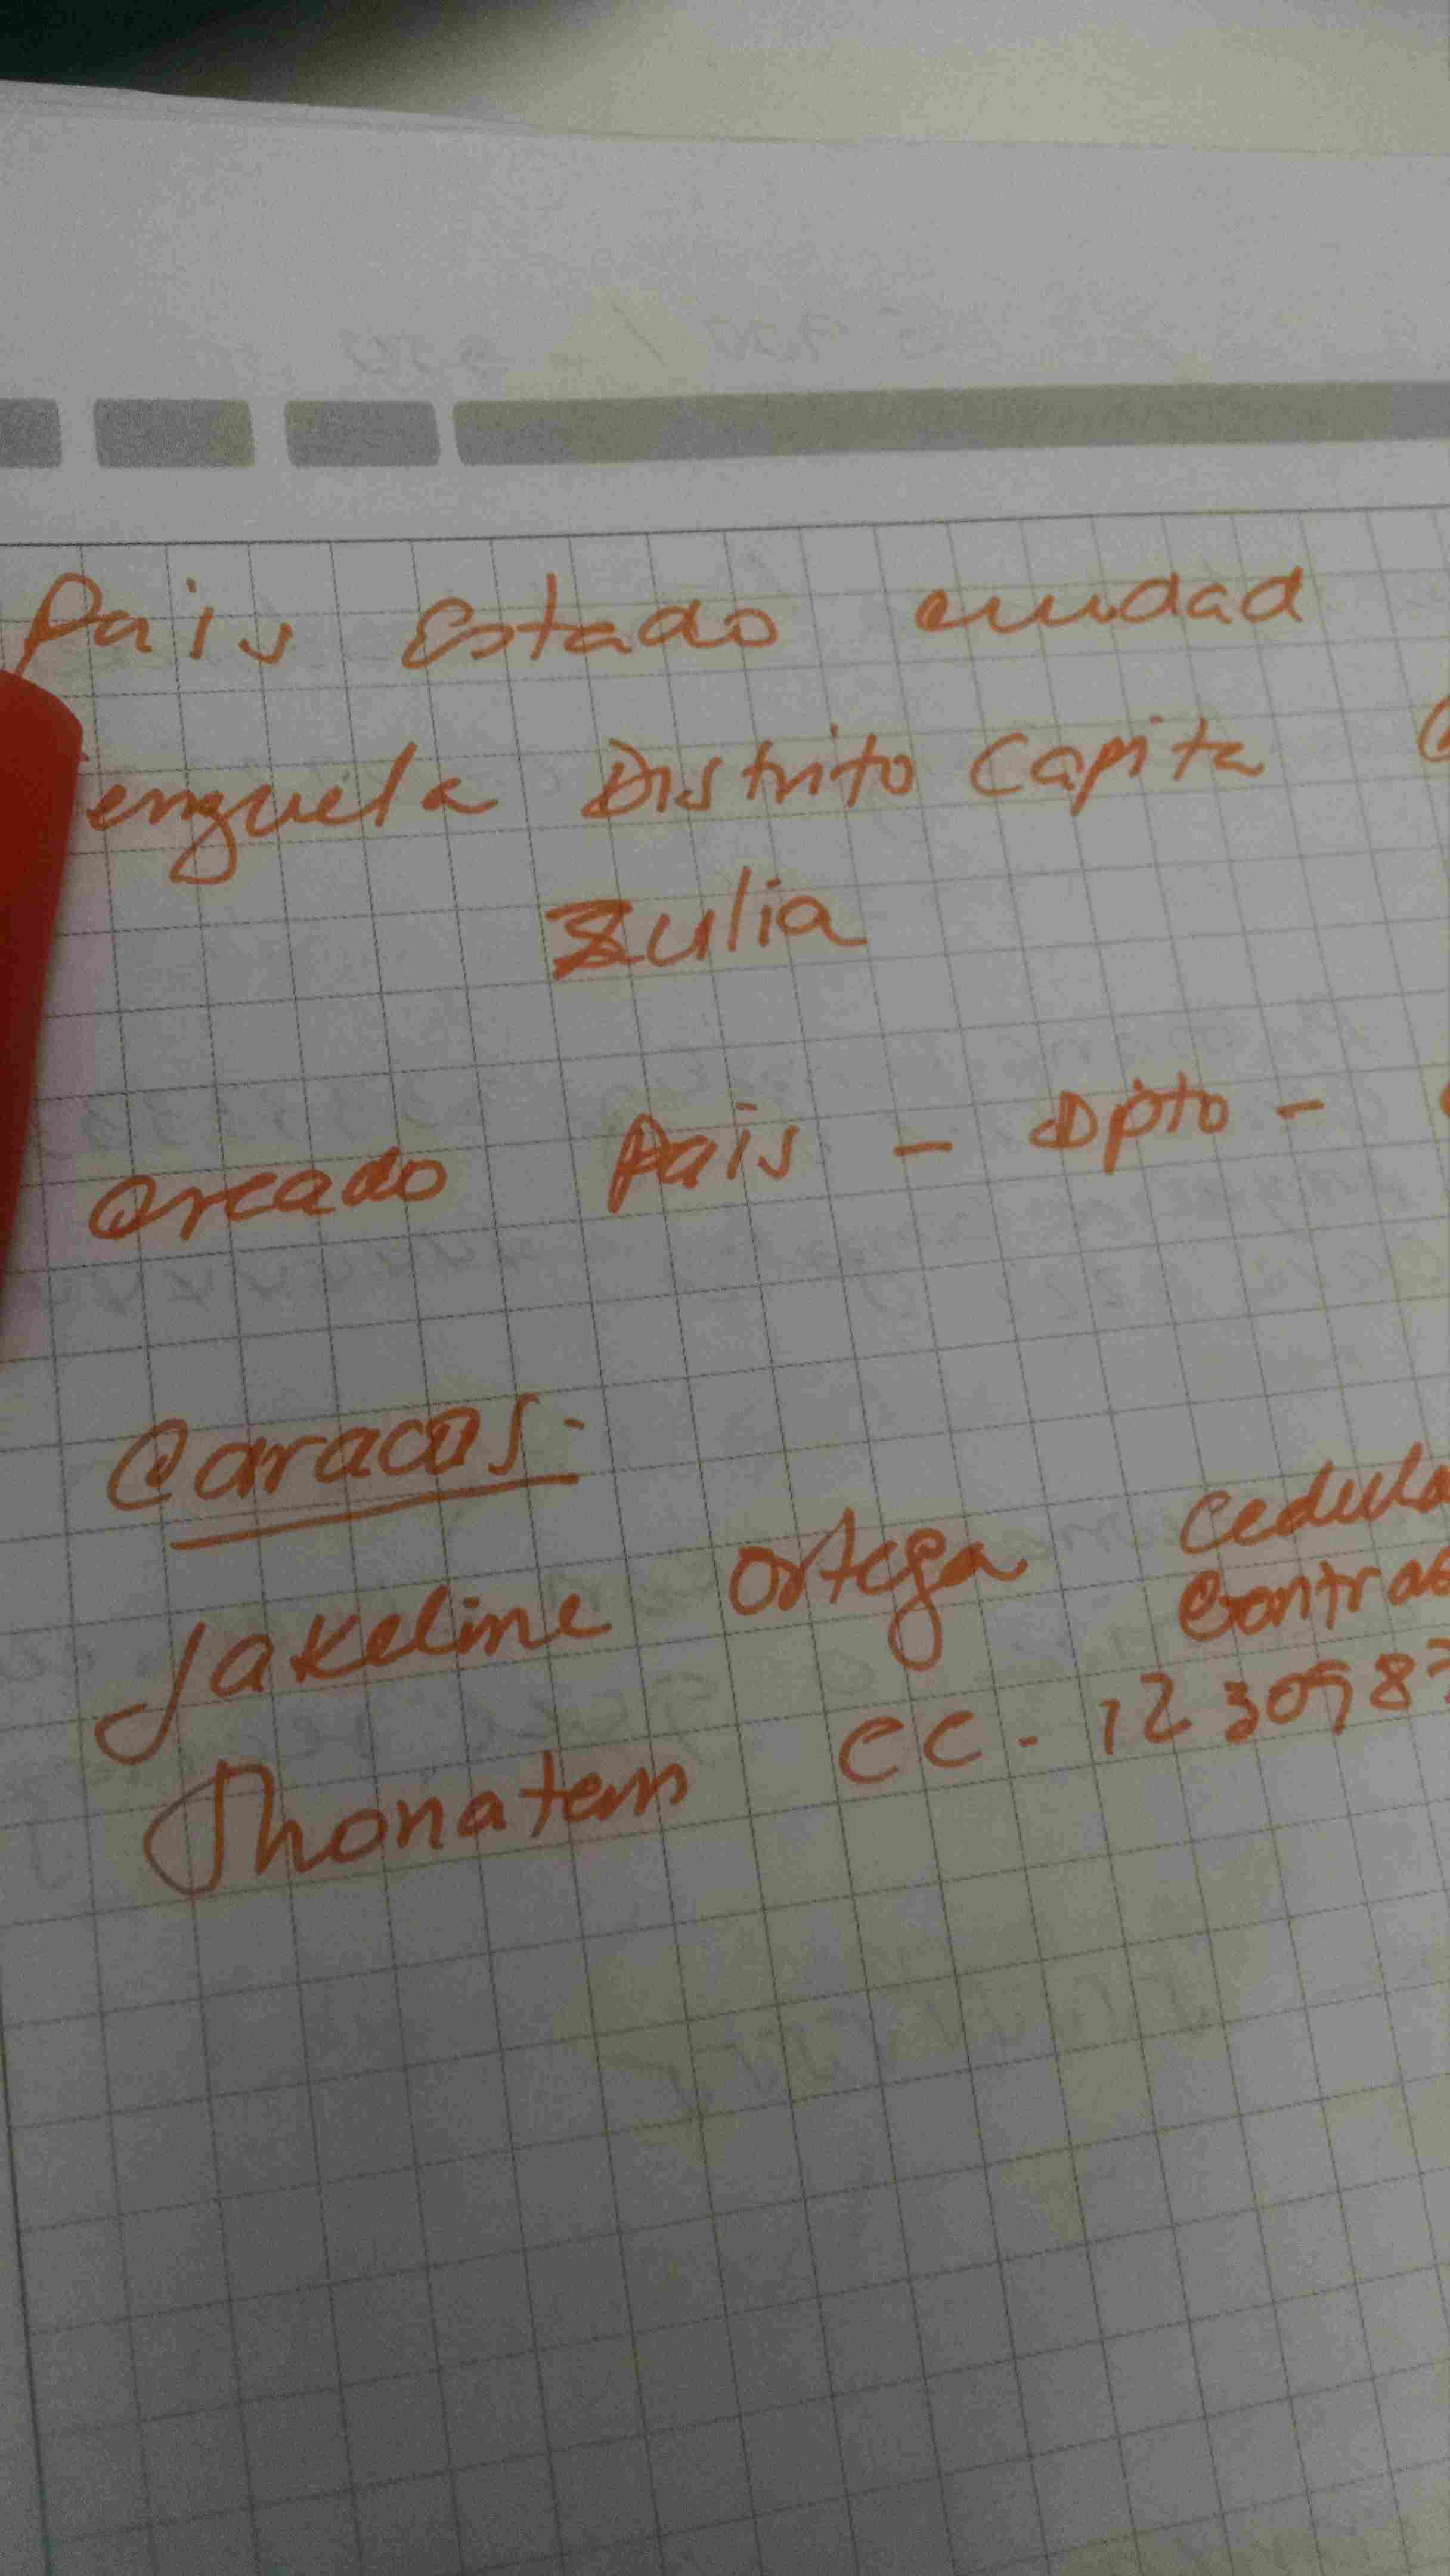 Pais Estado ciudad
enzuela Distrito Capita
Zulia
creado Pais - Dpto -
Caracas.
Jakeline Ortega cedula
Contras
Jhonatan CC. 1230987